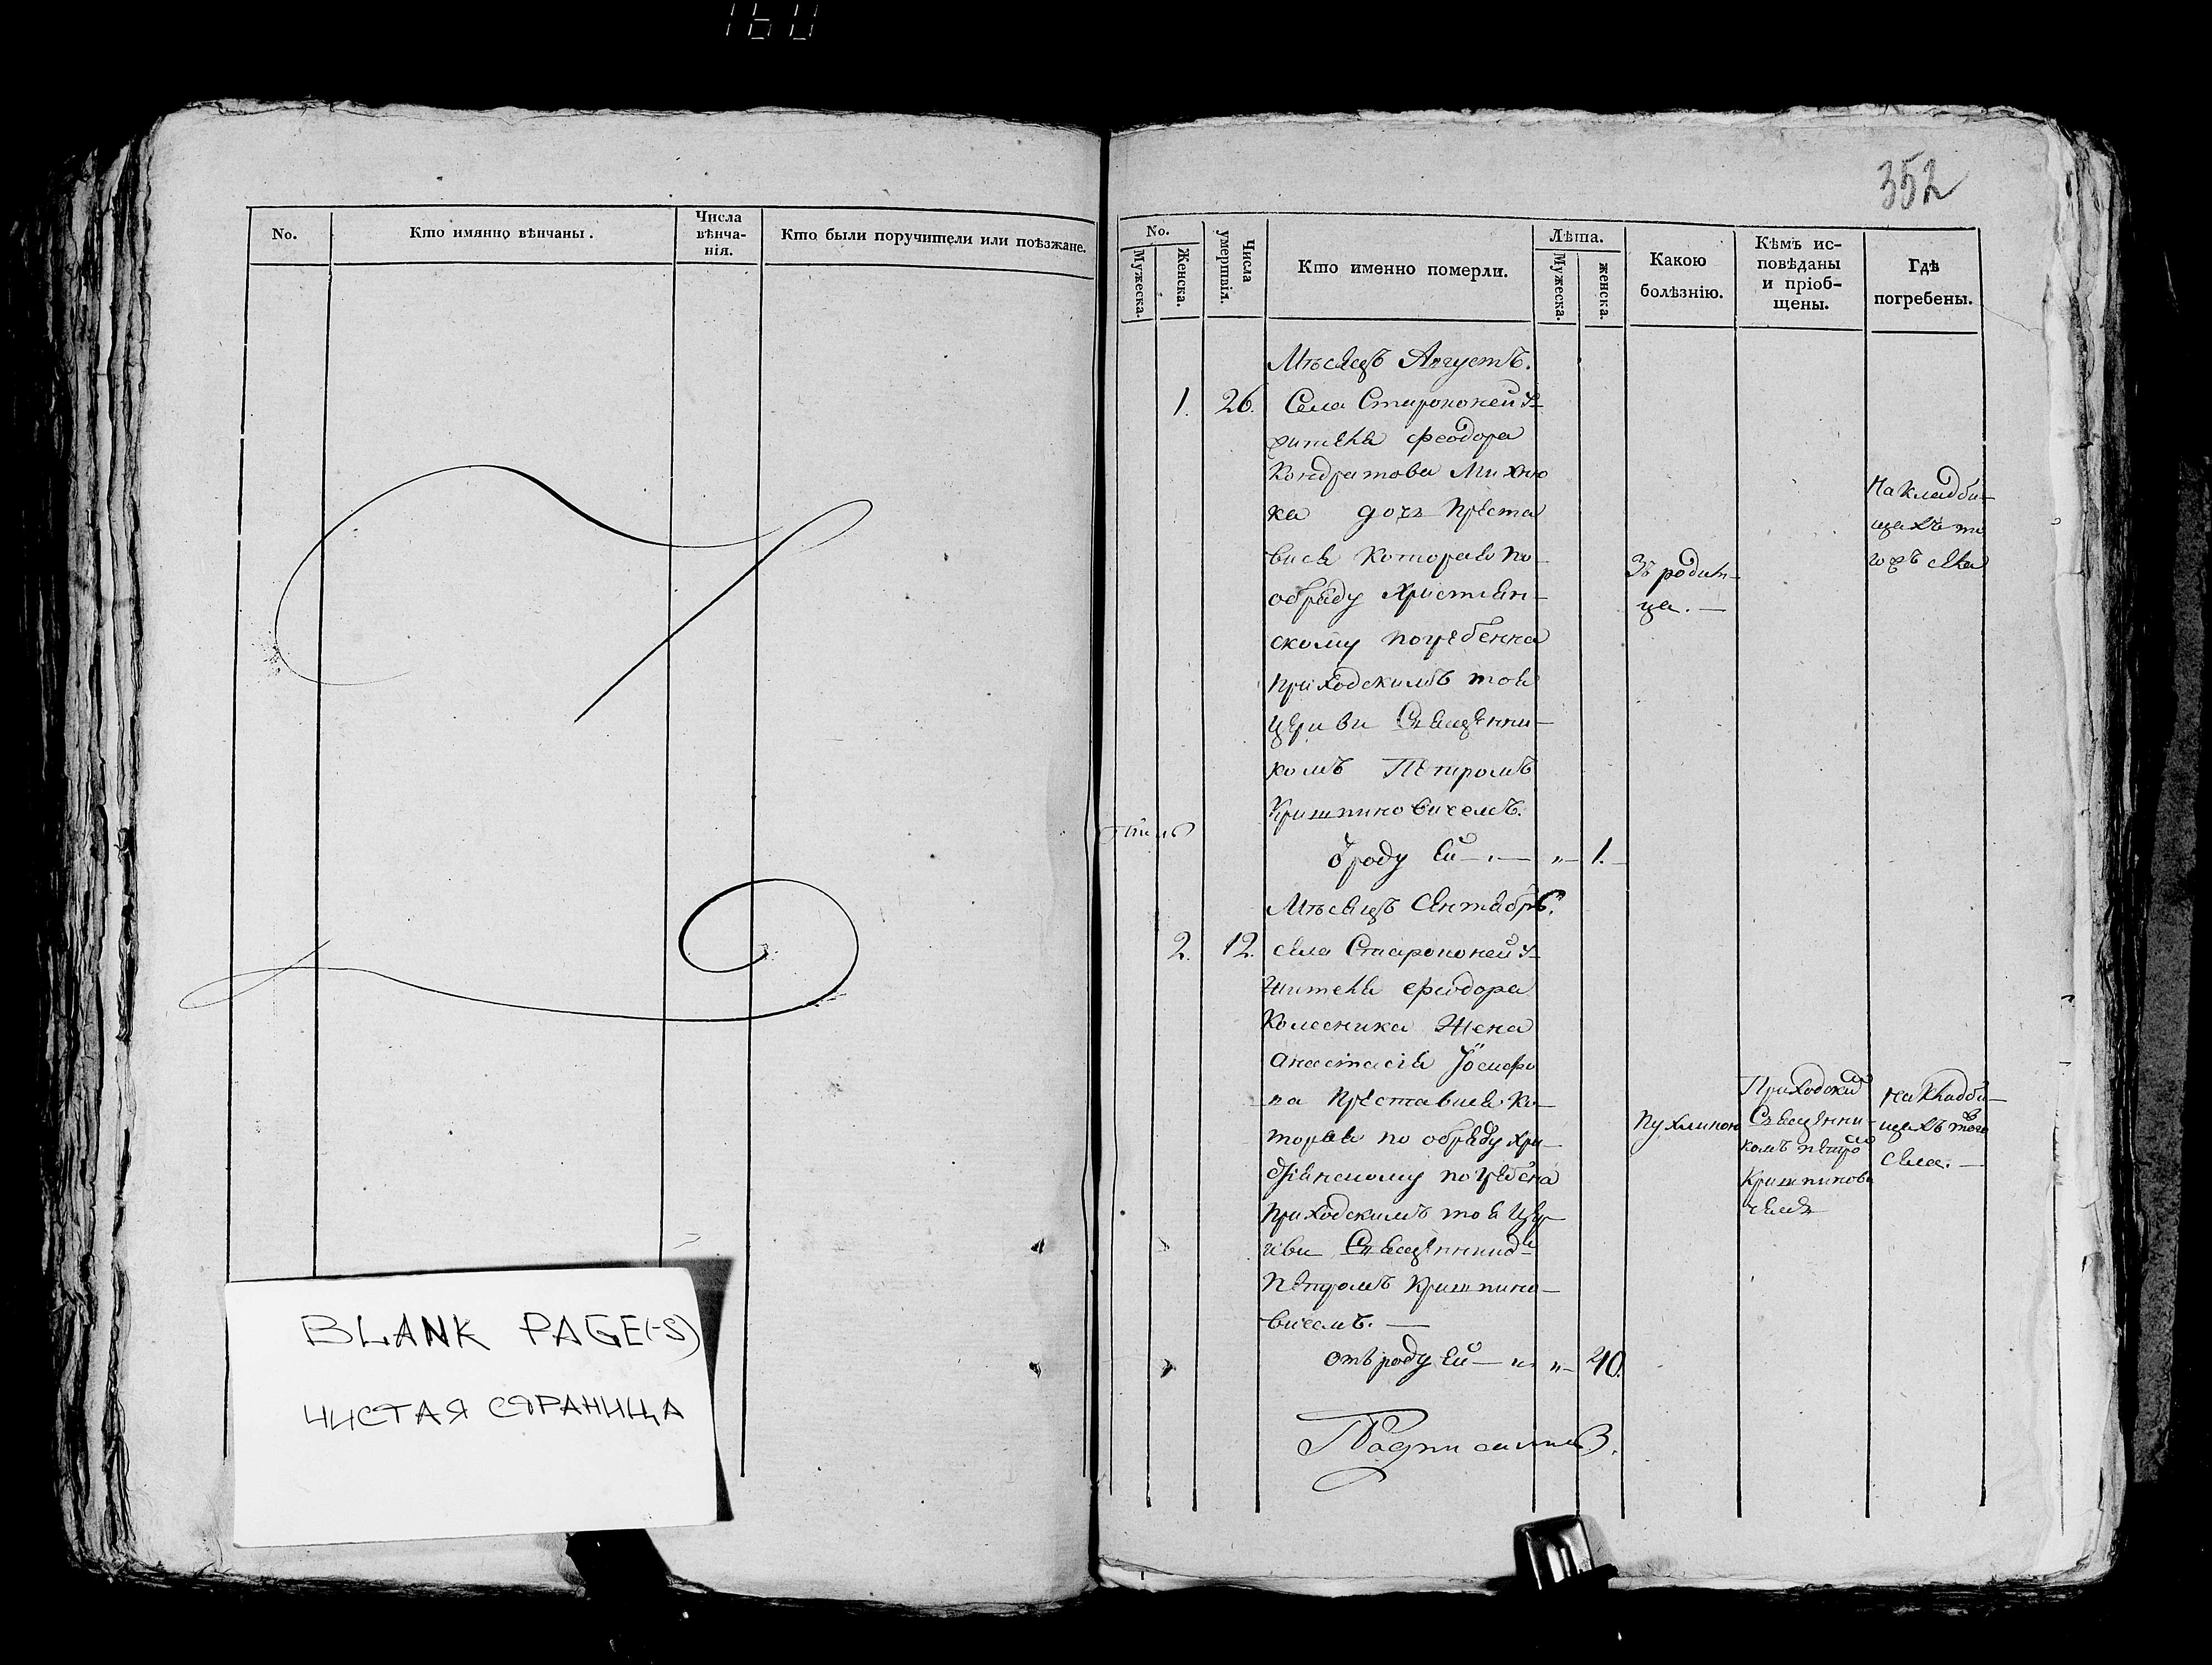 160
No.
Кто имянно вѣнчаны.
Числа
вѣнча-
нія.
Кто были поручители или поѣзжане.
BLANK PAGE(-S)
ЧИСТАЯ СТРАНИЦА
352
No.
Мужеска.
Женска.
Числа
умертвія.
Кто именно померли.
Лѣта.
Мужеска.
женска.
Какою
болѣзнію.
Кѣмъ ис-
повѣданы
и пріоб-
щены.
Гдѣ
погребены.
Мѣсяцъ Августъ.
1. 26. Села
жителя феодора
Кондратова Михню
ка дочь Преста
вися Которая по-
обряду Христіян-
скому погребенна
приходскимъ тоя
Церкви Священни-
комъ Петромъ
Кришпиновичемъ.
Зъ родим-
ца. —
На кладби-
щахъ то
гожъ села
ѿ роду ей — „ — „ — 1. —
Мѣсяцъ Сентябрь.
2. 12. села
жителя феодора
Колесника Жена
анастасія Іосифо
ва Преставися Ко-
торая по обряду хри-
стіянскому погребена
приходскимъ тоя Цер-
кви Священникомъ
Петромъ Кришпино-
вичемъ. —
Пухлиною
Приходским
Священни-
комъ петро
Кришпинови
чемъ
на кладби-
щахъ того
села. —
отъ роду ей — „ „ — 40.